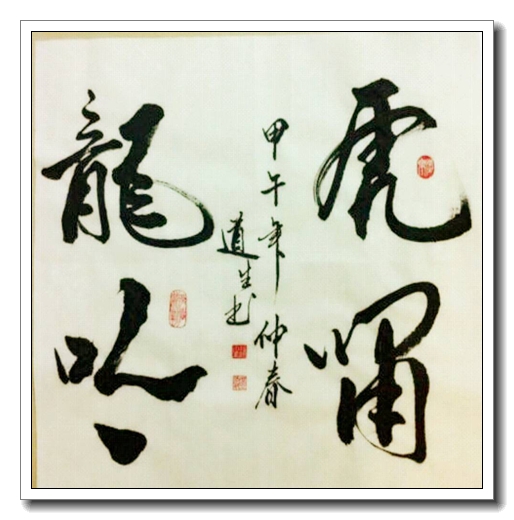 虎嘯
甲午年仲春
道生书
龍吟